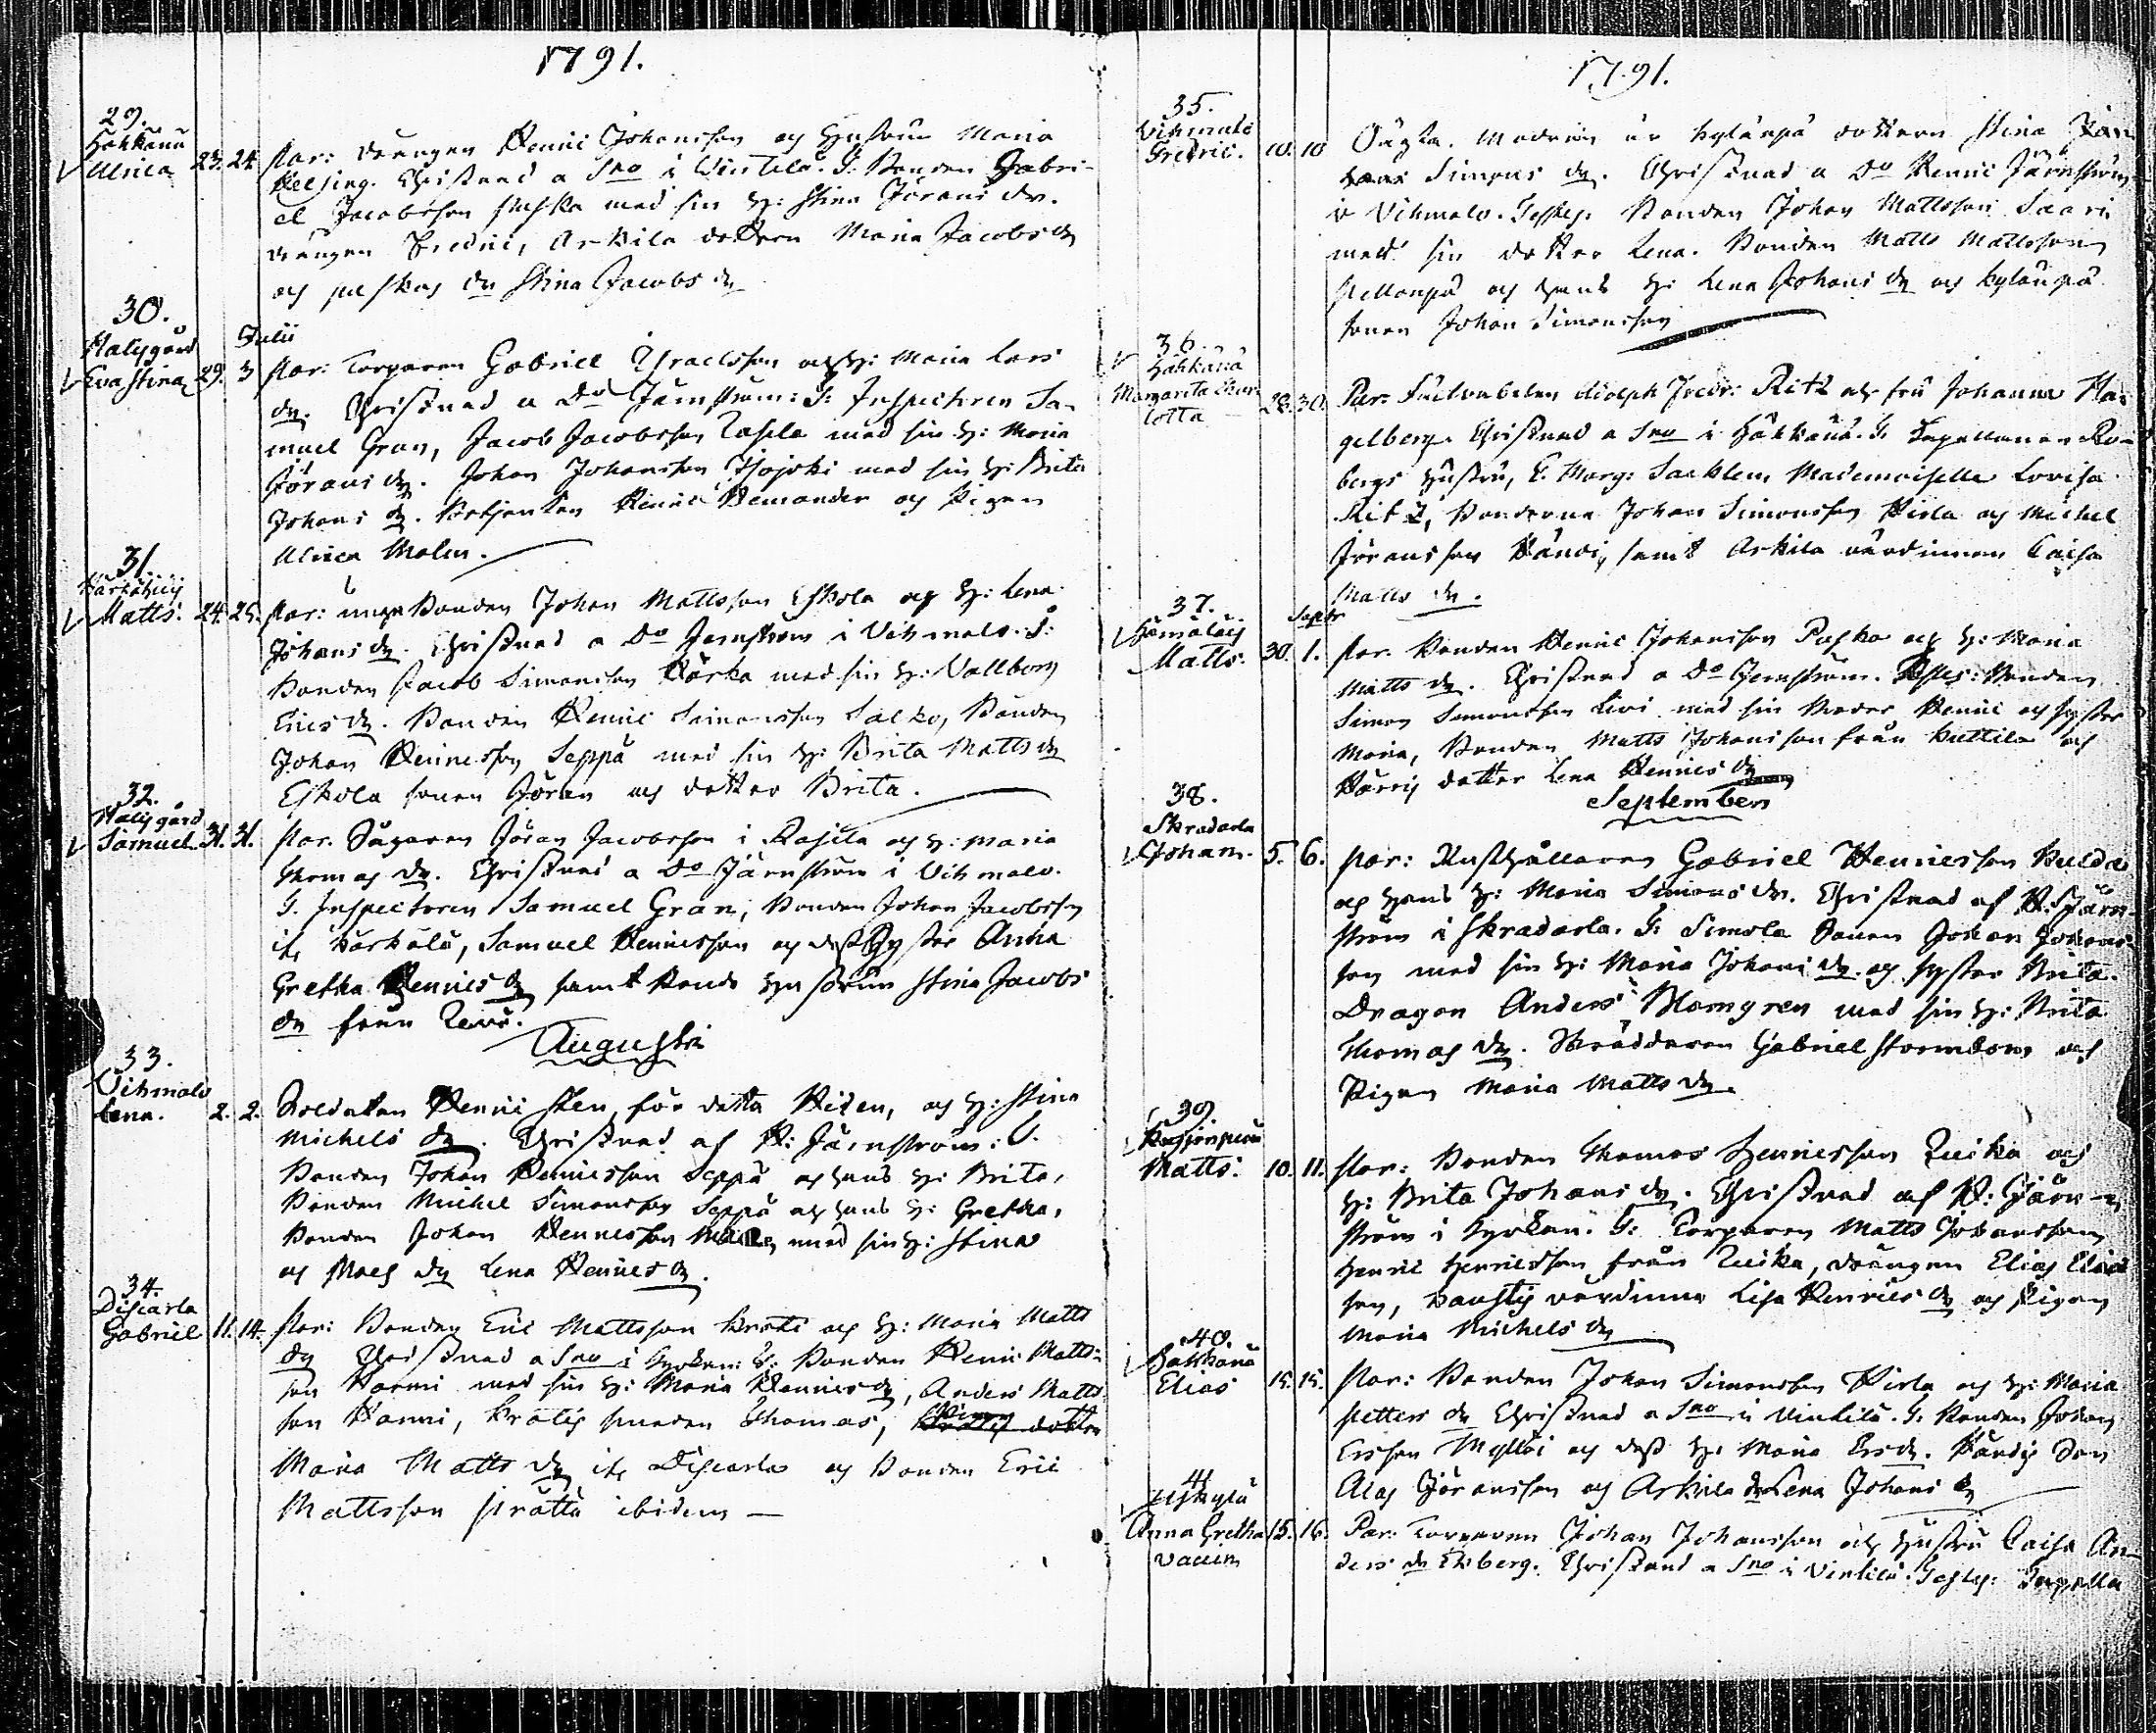 1791.
29.
Håkkänä
Ulrica 23. 24. Par: drängen Henric Johansson och Hustrun Maria
Helsing. Christnad a Sno i Vintilä. T: Bonden Gabri-
el Jacobsson med sin H: Stina Jörans dr.
drängen Fredric, Arkila dottren Maria Jacobs dr
och dr Stina Jacobs dr
30. Julii
Halygård
Eva Stina 29. 3 Par: Torparen Gabriel Ysraelsson och H: Maria Lars
dr. Christnad a Do Järnström: T: Inspectoren Sa-
muel Gran, Jacob Jacobsson Rasila med sin H: Maria
Jörans dr. Johan Johansson Isojoki med sin H: Brita
Johans dr. Henric och Pigan
Ulrica Malm.
31.
Matts. 24. 25. Par: unga Bonden Johan Mattsson Eskola och H: Lena
Johans dr. Christnad a Do Jernström i Vihmalo. T:
Bonden Jacob Simonsson Härka med sin H: Vallborg
Erics dr. Bonden Henric Simonsson Salko, Bonden
Johan Henricsson Seppä med sin H: Brita Matts dr
Eskola sonen Jöran och dotter Brita.
32.
Halygård
Samuel 31. 31. Par. Sågaren Jöran Jacobsson i Rasila och H: Maria
Thomas dr. Christnad a Do Järnström i Vihmalo.
T. Inspectoren Samuel Gran, Bonden Johan Jacobsson
Samuel Henricsson och dess Syster Anna
Gretha Henrics dr samt Bonde Hustrun Stina Jacobs
dr från
Augusti
33.
Vihmalo
Lena. 2. 2. Soldaten Henric Sten, för detta Hiden, och H: Stina
Michels dr. Christnad af H: Järnström: T.
Bonden Johan Henricsson Seppä och hans H: Brita,
Bonden Michel Simonsson Seppä och hans H: Gretha,
Bonden Johan Henricsson med sin H: Stina
och dr Lena Henrics dr.
34.
Discarla
Gabriel 11. 14. Par: Bonden Eric Mattsson Kråti och H: Maria Matts
dr Christnad a Sno i Kyrkan: T: Bonden Henric Matts-
son Hanni med sin H: Maria Henrics dr, Anders Matts
son Hanni, Kråtis Thomas, Pigan
Maria Matts dr Discarla och Bonden Eric
Mattsson Prättä ibidem —
1791.
35.
Vihmalo
Fredric. 10. 10 Oägta. Modren är Kylänpä dottren Stina
Simons dr. Christnad a Do Henric Järnström
i Vihmalo. Testes: Bonden Johan Mattsson Saari
med sin dotter Lena. Bonden Matts Mattsson
Pellonpä och hans H: Lena Johans dr och Kylänpä
sonen Johan Simonsson
36.
Håkkänä
Margarita Char-
lotta 28. 30. Par. Fältwäbelen Adolph Fredr: Ritz och fru Johanna Ha-
gelberg. Christnad a Sno i Håkkänä. T. Capellanen Ro-
bergs Hustru, E. Marg: Sacklen, Mademoiselle Lovisa
Ritz, Bönderna Johan Simonsson Hirla och Michel
Göransson Händi, samt Arkila värdinnan Caisa
Matts dr.
37. Septr
Matts. 30. 1. Par. Bonden Henric Johansson Paska och H: Maria
Matts dr. Christnad a Do Gernström. Testes: Bonden
Simon Simonsson Livi med sin Moder Henric och Syster
Maria, Bonden Matts Johansson från Huttila och
dotter Lena Henrics dr
September
38.
Skradarla
Johan. 5. 6. Par: Rusthållaren Gabriel Henricsson
och hans H: Maria Simons dr. Christnad af H: Järn-
ström i Skradarla. T: Simola Sonen Johan Johans-
son med sin H: Maria Johans dr. och Syster Brita.
Dragon Anders Blomgren med sin H: Brita
Thomas dr. Skräddaren Gabriel Stormbom och
Pigan Maria Matts dr.
39.
Matts. 10. 11. Par: Bonden Thomas Henricsson Ruika och
H: Brita Johans dr. Christnad af H: Järn-
ström i Kyrkan. T: Torparen Matts Johansson,
Henric Henricsson från Ruika, drängen Elias Elias
son, värdinna Lisa Henrics dr och Pigan
Maria Michels dr
40.
Håkkänä
Elias 15. 15. Par: Bonden Johan Simonsson Hirla och H: Maria
Petters dr Christnad a Sno i Vintilä. T. Bonden Johan
Ersson Mylläri och dess H: Maria Ers dr. Händis Son
Göransson och Arkila dr Lena Johans dr
41
Anna Gretha 15. 16. Par: Torparen Johan Johansson och Hustru Caisa An-
ders dr Ekberg. Christnad a Sno i Vintilä. Testes: Capella